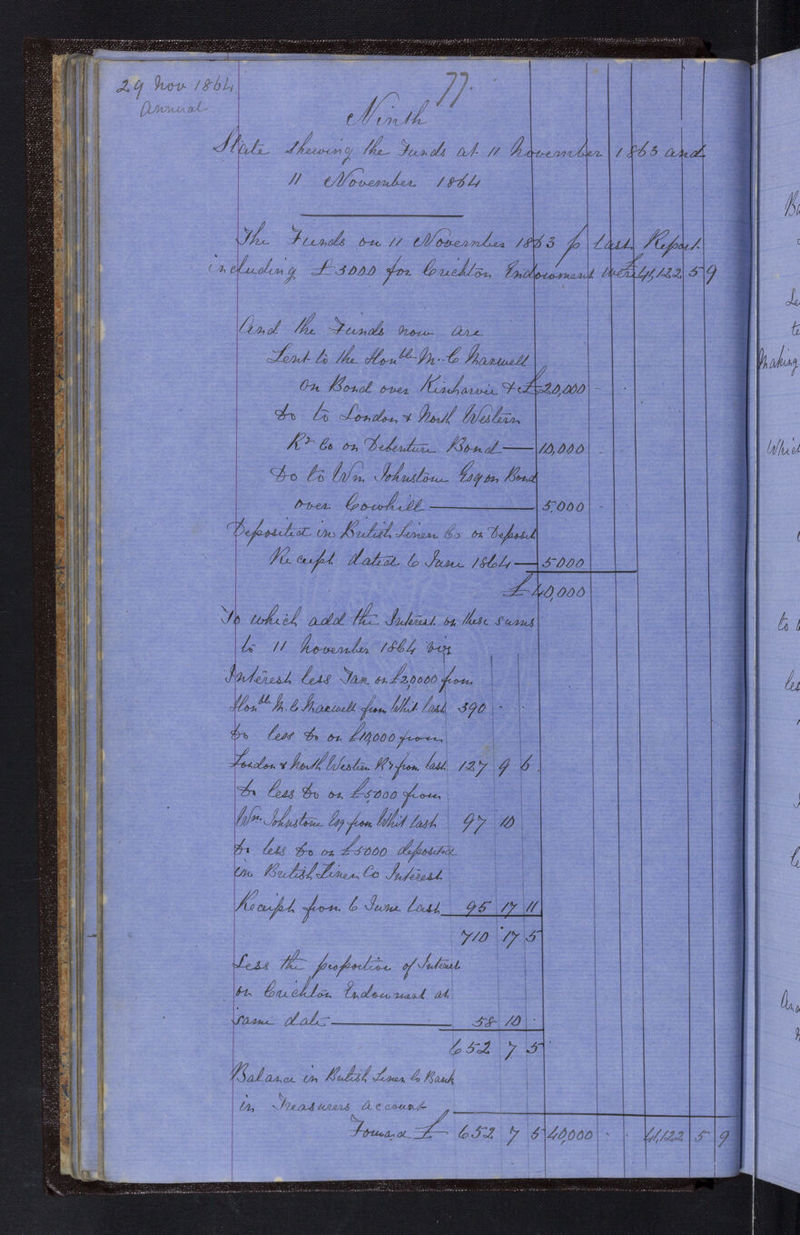 29 Nov 1864
Annual
77.
Ninth
State shewing the Funds at 11 November 1863 and
11 November 1864
The Funds on 11 November 1863 p last Report
including £3000 for Crichton Endowment were £41,122 5 9
And the Funds now are
Lent to the Honble M. C Maxwell
on Bond over Kinharvie & £20,000
Do to London & North Western
Ry Co on Debenture Bond 10,000
Do to Wm Johnstone Esq on Bond
over Cowhill 5.000
Deposited in British Linen Co on Deposit
Receipt dated 6 June 1864 5000
£40,000
To which add the Interest on these sums
to 11 November 1864 viz
Interest less Tax on £20000 from
Honble M. C Maxwell from Whit last 390
Do less Do on £10,000 from
London & North Western Ry from last 127 9 6
Do less Do on £5000 from
Wm Johnstone Esq from Whit last 97 10
Do less Do on £5000 deposited
in British Linen Co Interest
Receipt from 6 June last 95 17 11
710 17 5
Less the proportion of Interest
on Crichton Endowment at
same date 58 10
652 7 5
Balance in British Linen Co Bank
in Treasurers account
Forward £ 652 7 5 40,000 41,122 5 9
making
Which